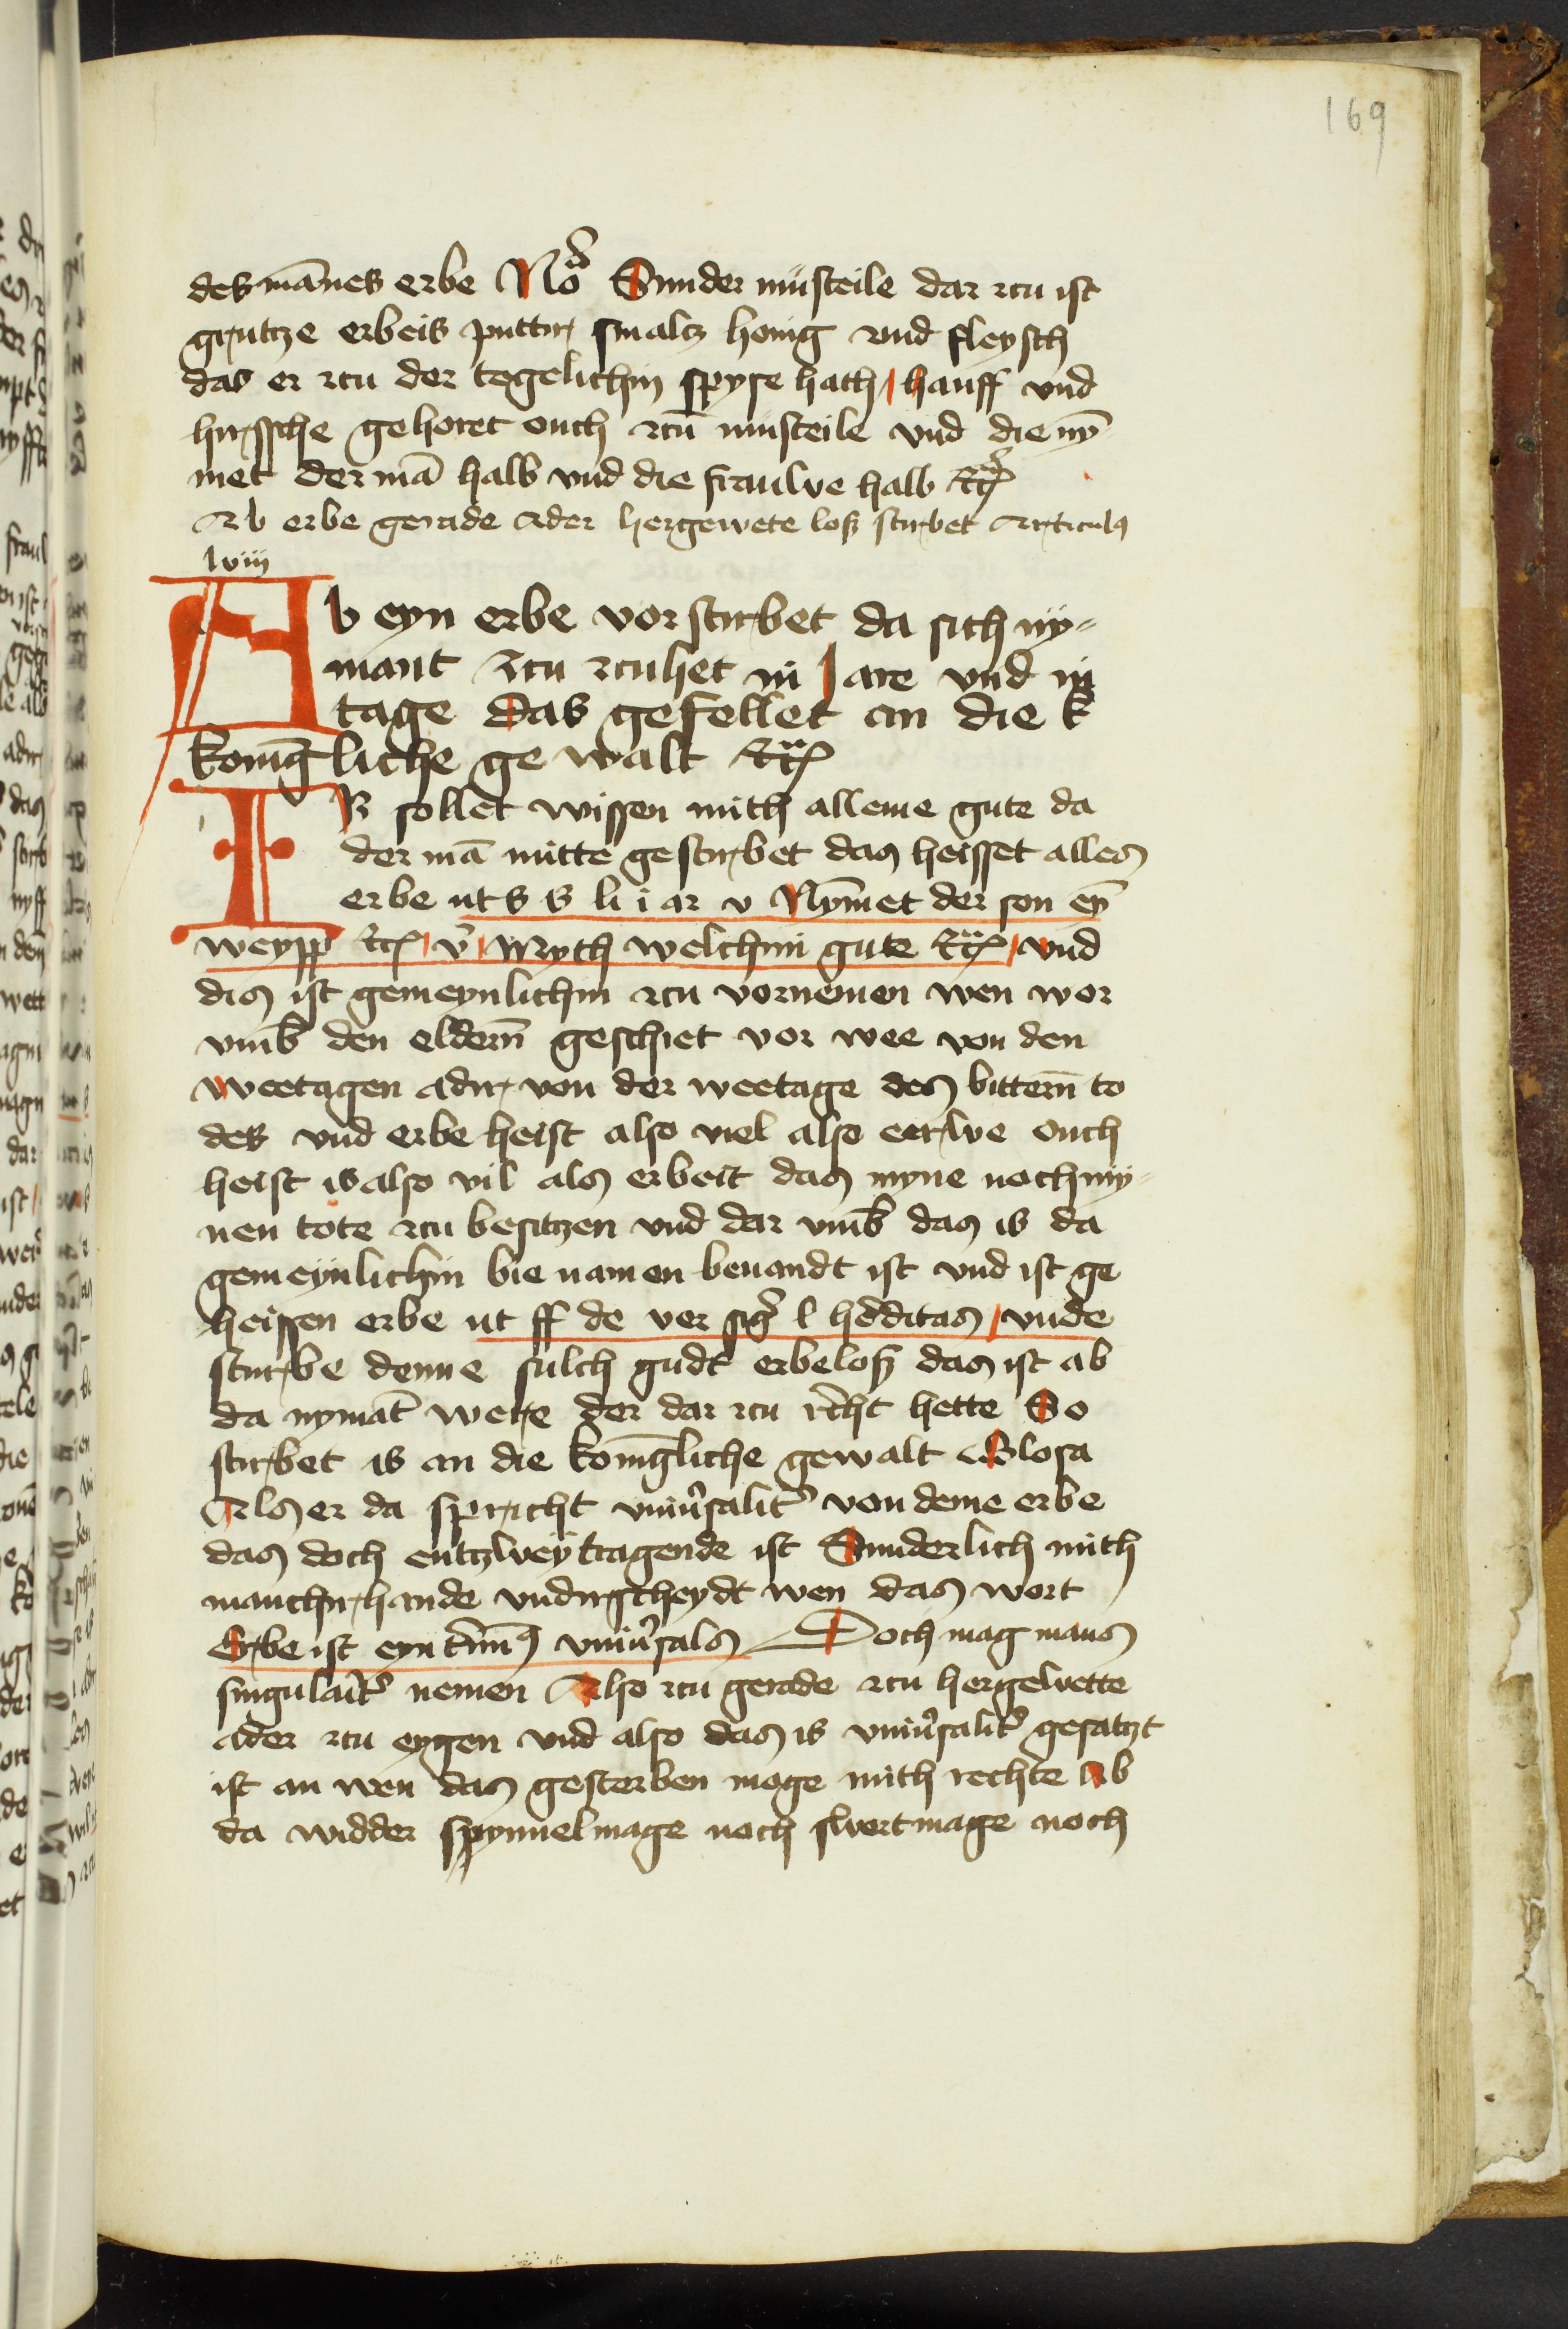 169
des mānes erbe No Sunder musteile dar zcu ist
grutze erbeis puttir smaltz honig vnd fleysch
das er zcu der tegelichin spyse hath hanff vnd
hirssche gehoret ouch zcu musteile vnd die ny̅
met der mā halb vnd die frauwe halb etc
Ab erbe gerade ader hergewete loß stirbet Articulus
lviii
Ab eyn erbe vorstirbet da sich ny-
mant zcu zcuhet in Jare vnd in
tage das gefellet an die k
konigliche gewalt etc
IR sollet wissen mith alleme gute da
der mā mitte gestirbet das heisset alles
erbe ut s s li i ar v Nym̄et der son ey̅
weyp etc v̄ Myth welchim gute etc vnd
dis ist gemeynlichin zcu vornemen wen wor
vmb den eldern̄ geschiet vor wee von den
weetagen adir von der weetage des bittern̄ to
des vnd erbe heist also viel also eerwe ouch
heist is also vil als erbeit das myne noch my-
nen tote zcu besitzen vnd dar vmb das is da
gemeynlichin bie namen benandt ist vnd ist ge
heissen erbe ut ff de ver sig̅ l hdditas vnde
stirbe denne sulch gudt erbeloß das ist ab
da nymat̄ were der dar zcu recht hette So
stirbet is an die konigliche gewalt Glosa
Als er da spricht vniūsalit̄ von deme erbe
das doch entzwey tragende ist Sunderlich mith
manchirhande vndirscheydt wen das wort
Erbe ist eyn t̄min9 vniūsals Doch mag mans
singulait̄ nemen Also zcu gerade zcu hergewette
ader zcu eygen vnd also das is vniūsalit̄ gesatzt
ist an wen das gesterben moge mith rechte Ab
da widder spynnelmage noch swertmage noch